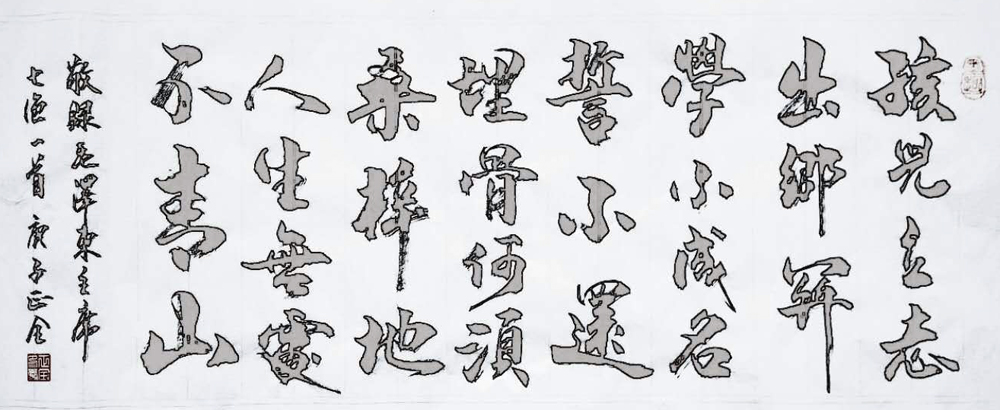 孩兒立志
出鄉關
學不成名
誓不還
埋骨何須
桑梓地
人生無處
不青山
敬録毛澤東主席
七律一首 庚子正全